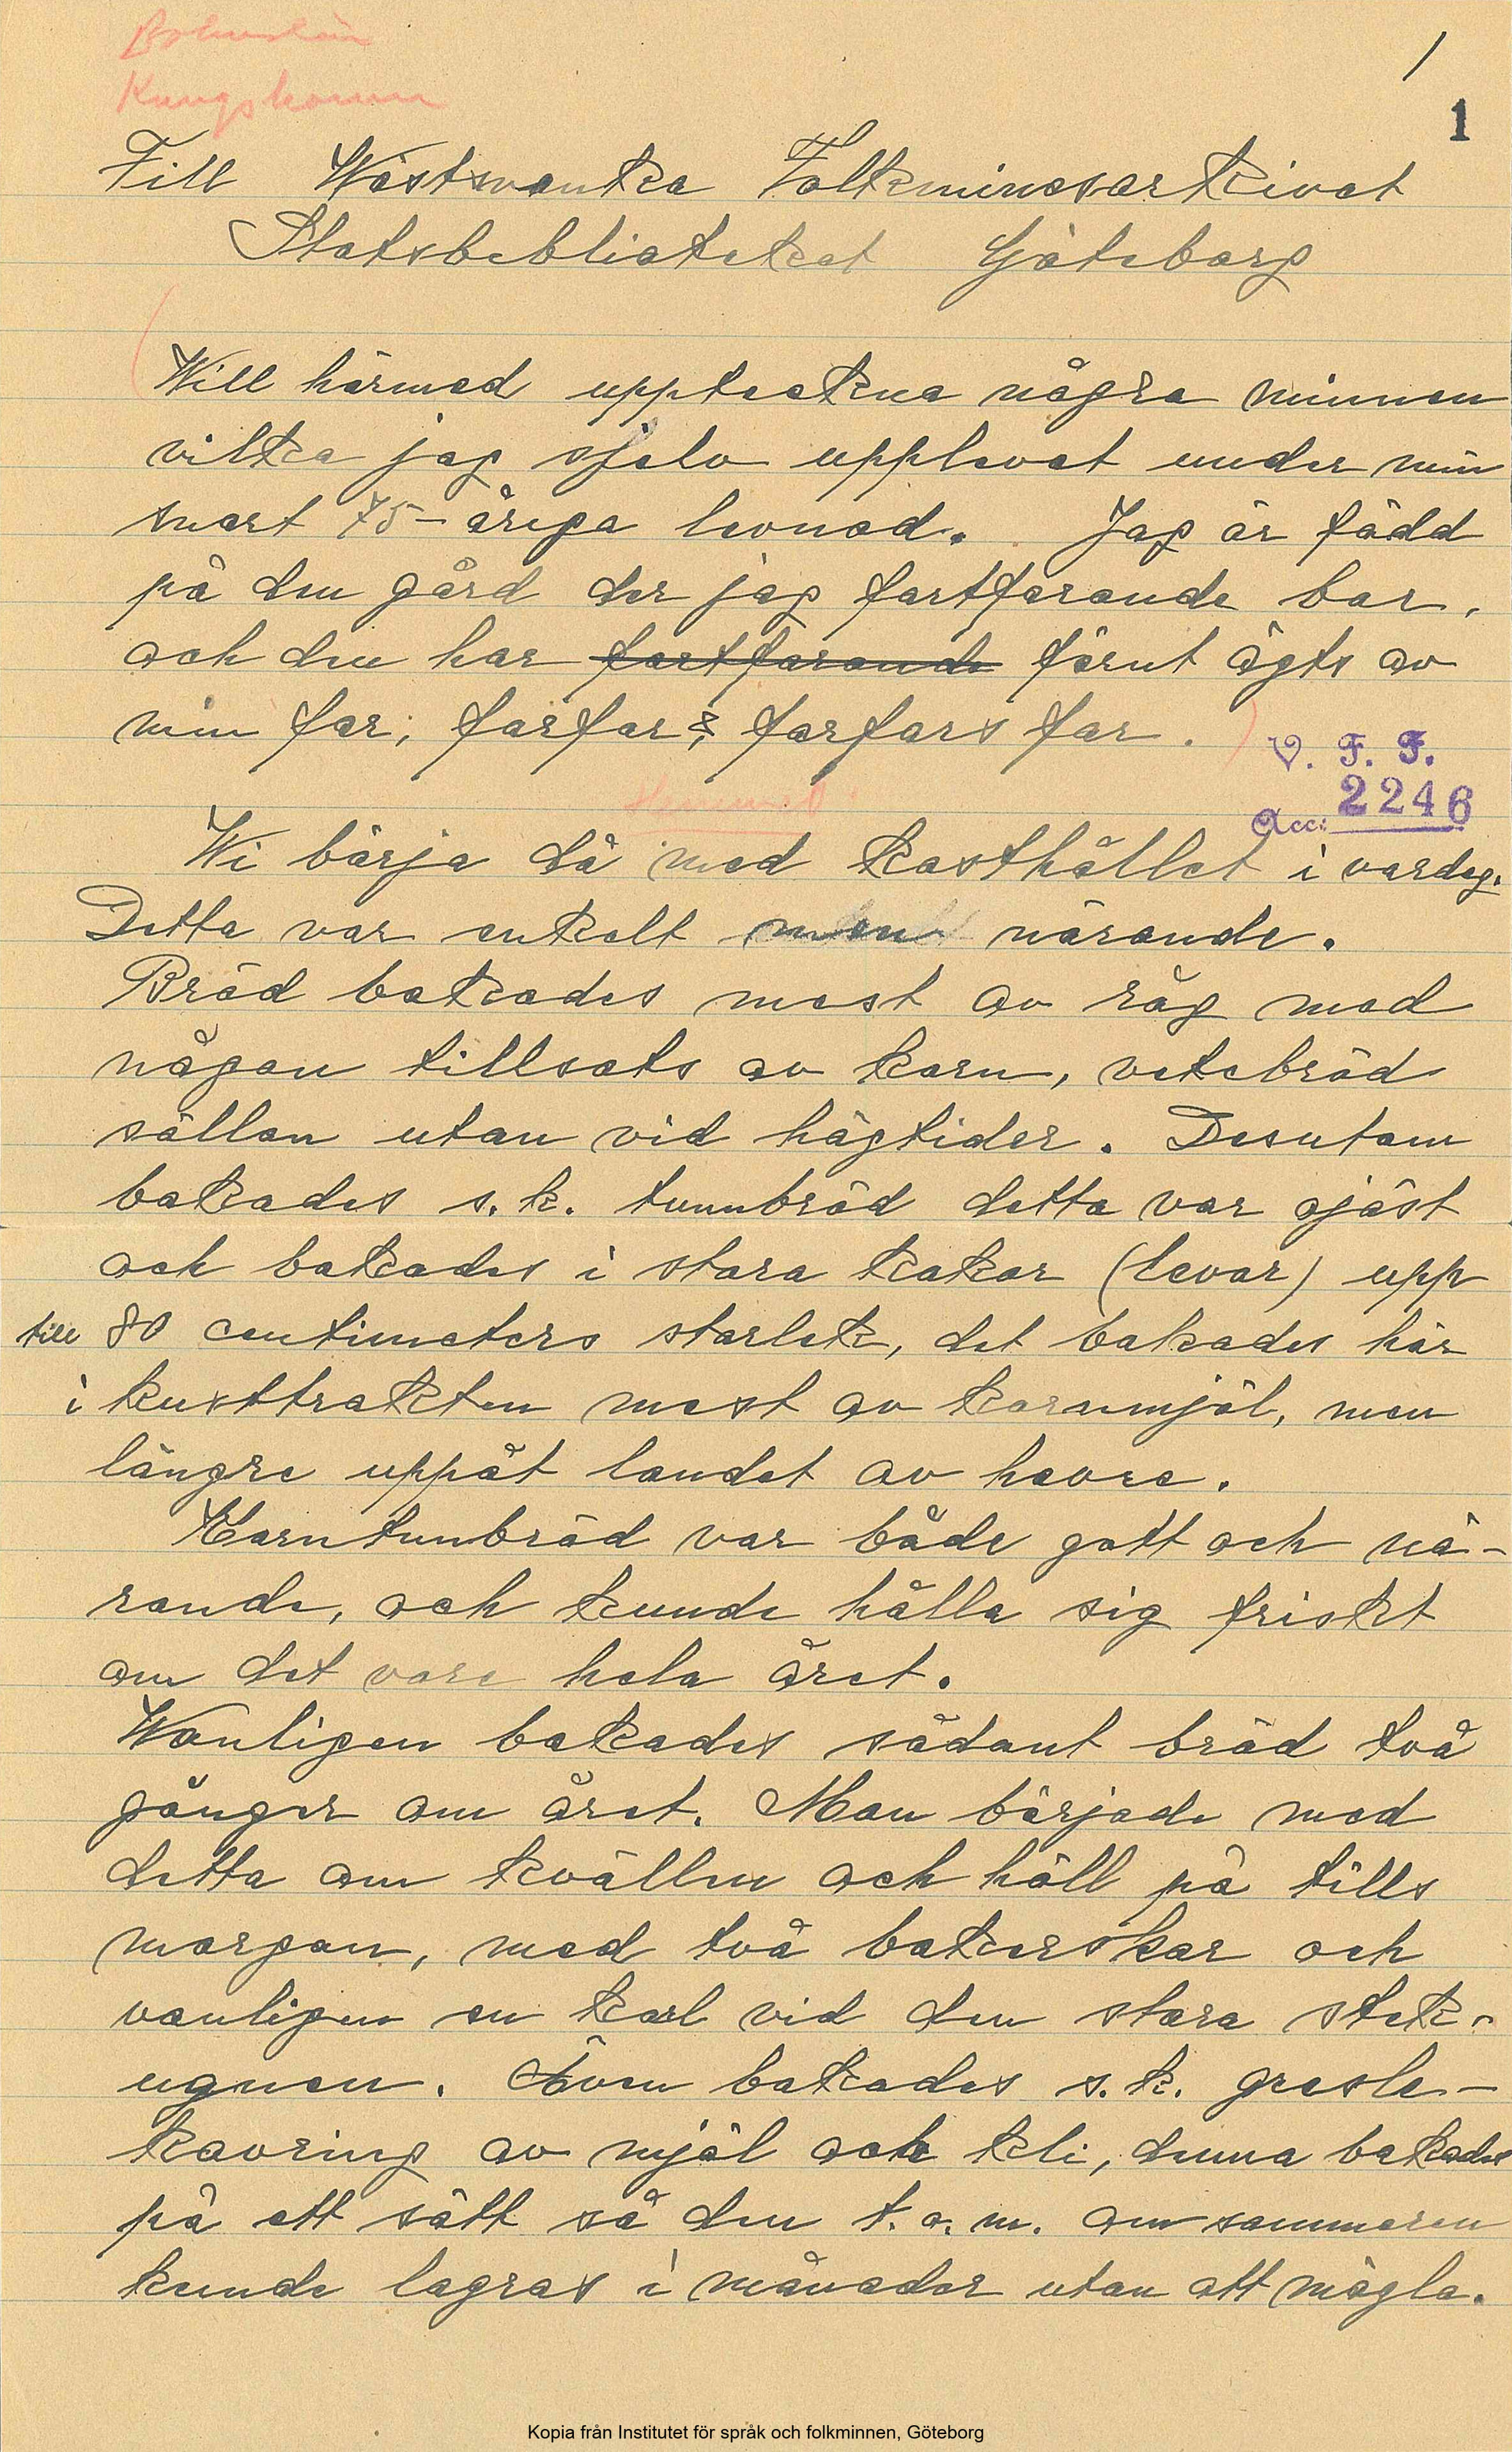 Bohuslän
Kungshamn
1
1
Till Wästsvenska Folkminesarkivet
Statsbeblioteket Göteborg
Will härmed uppteckna några minnen
vilka jag sjelv upplevat under min
snart 75-åriga levnad. Jag är född
på den gård der jag fortfarande bor,
och den har fortfarande förut ägts av
min far, farfar & farfars far.
V. F. F.
2246
Acc:
Wi börja då med kosthållet i vardag.
Detta var enkelt men närande.
Bröd bakades mest av råg med
någon tillsats av korn, vetebröd
sällan utan vid högtider. Desutom
bakades s.k. tunnbröd detta var ojäst
och bakades i stora kakor (levar) upp
till 80 centimeters storlek, det bakades här
i kusttrakten mest av kornmjöl, men
längre uppåt landet av havre.
Korntunbröd var både gott och nä-
rande, och kunde hålla sig friskt
om det vore hela året.
Wanligen bakades sådant bröd två
gånger om året. Man började med
detta om kvällen och höll på tills
morgon, med två bakerskor och
vanligen en karl vid den stora stek-
ugnen. Även bakades s.k. gresle-
kavring av mjöl och kli, denna bakades
på ett sätt så den t.o.m. om sommaren
kunde lagras i månader utan att mögla.
Kopia från Institutet för språk och folkminnen, Göteborg